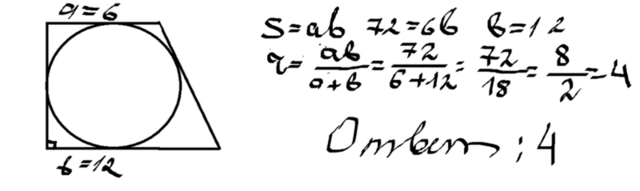 a=6
S=ab 72=6b b=12
r=ab/a+b=72/6+12=72/18=8/2=4
Ответ: 4
b=12